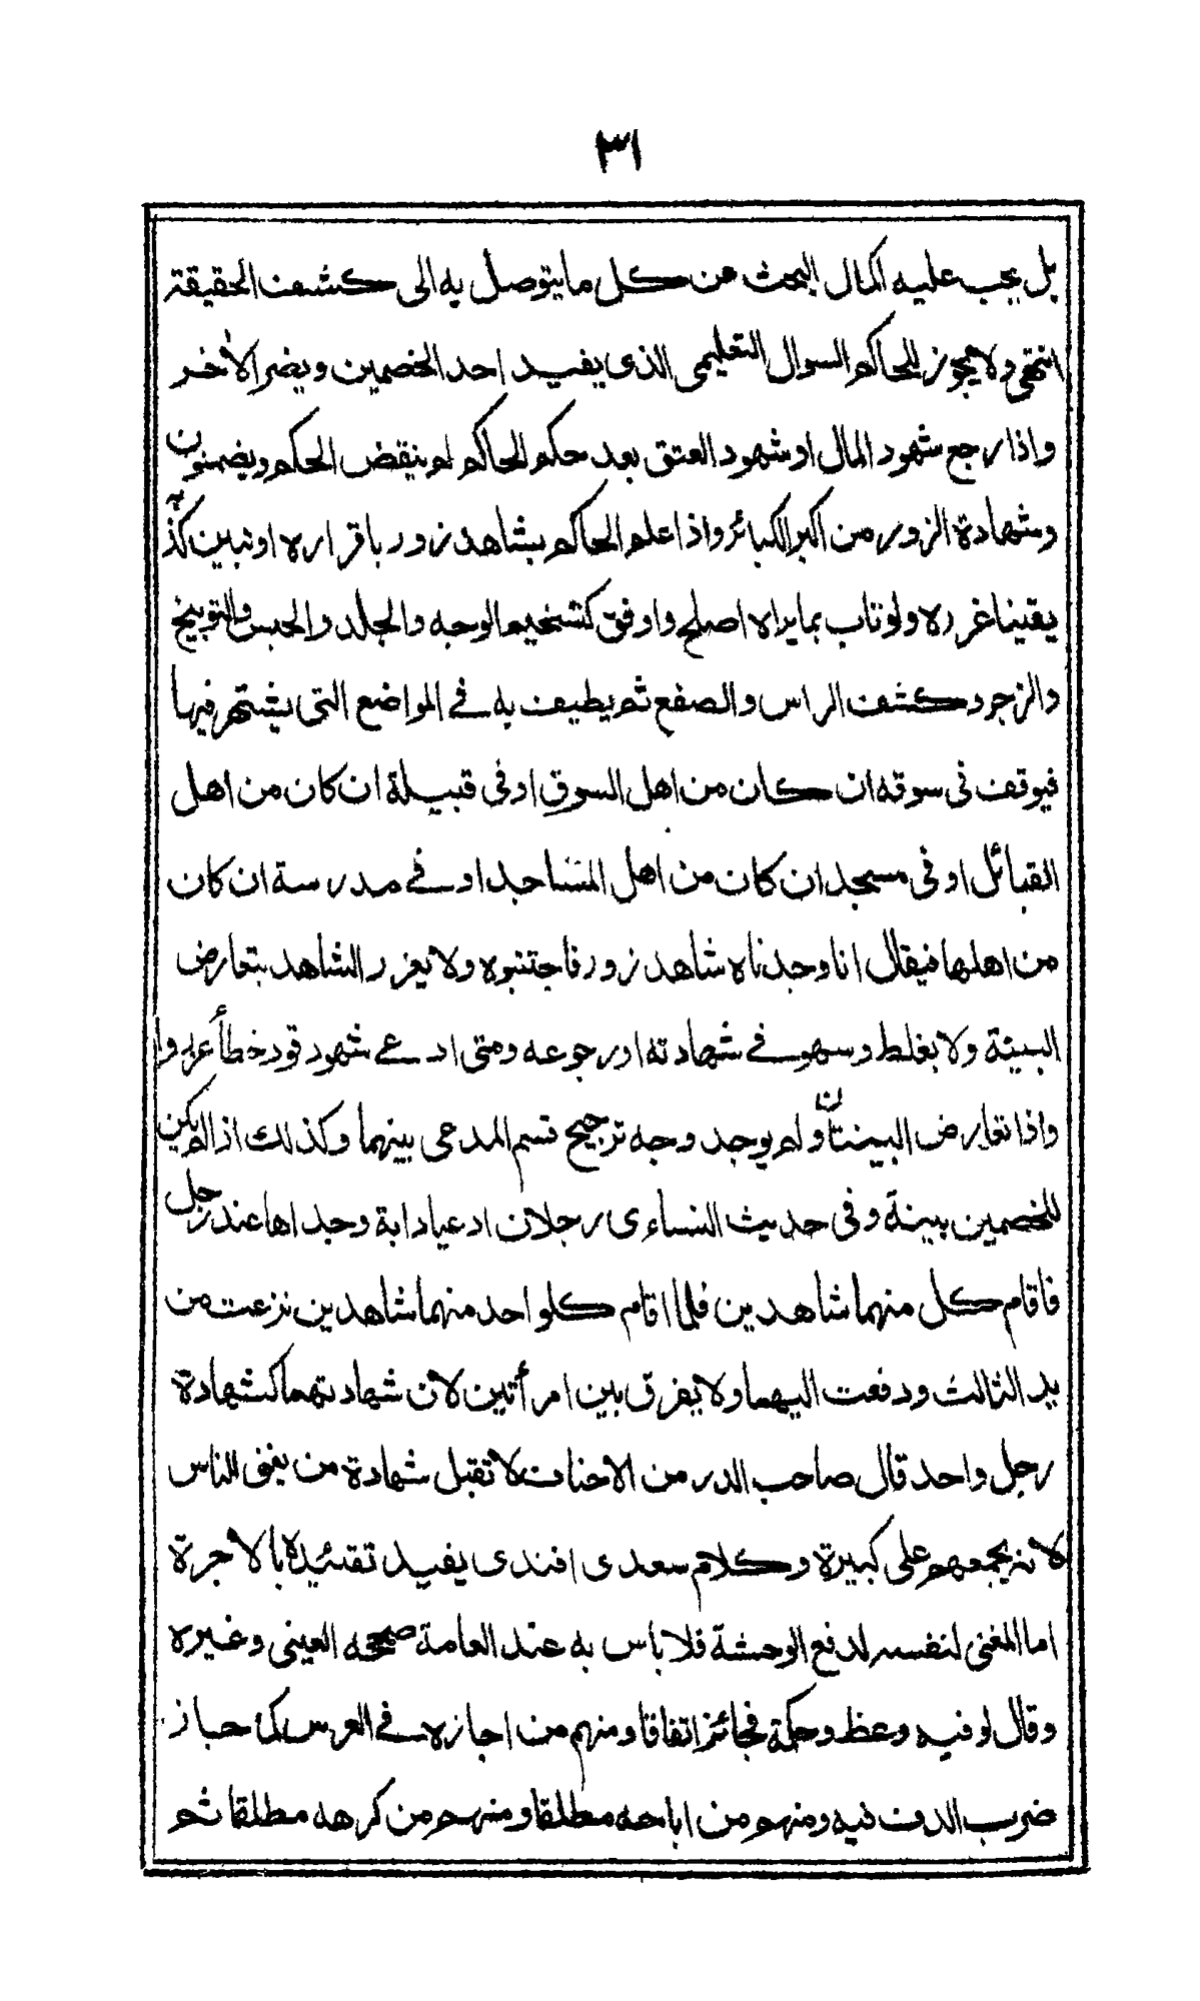 ٣١
بل يجب عليه اكمال البحث عن كل ما يتوصل به الى كشف الحقيقة
انتهى ولا يجوز للحاكم السوال التعليمى الذى يفيد احد الخصمين ويضر الأخر
واذا رجع شهود المال او شهود العتق بعد حكم الحاكم لم ينقض الحكم ويضمنون
وشهادة الزور من اكبر الكبائر واذا علم الحاكم بشاهد زور باقراره او تبين كذبه
يقينا عزره ولو تاب بما يراه اصلح واوفق كتسخيم الوجه والجلد والحبس والتوبيخ
والزجر وكشف الراس والصفع ثم يطيف به فى المواضع التى يشتهر فيها
فيوقف فى سوقه ان كان من اهل السوق او فى قبيلة ان كان من اهل
القبائل او فى مسجد ان كان من اهل المساجد او فى مدرسة ان كان
من اهلها فيقال انا وجدناه شاهد زور فاجتنبوه ولا يعزر الشاهد بتعارض
البينة ولا بغلط وسهو فى شهادته او رجوعه ومتى ادعى شهود قود خطأ عزروا
واذا تعارض البينتان ولم يوجد وجه ترجيح قسم المدعى بينهما وكذلك اذا لم يكن
للخصمين بينة وفى حديث النساءى رجلان ادعيا دابة وجداها عند رجل
فاقام كل منهما شاهدين فلما اقام كلواحد منهما شاهدين نزعت من
يد الثالث ودفعت اليهما ولا يفرق بين امرأتين لان شهادتهما كشهادة
رجل واحد قال صاحب الدر من الاحناف لا تقبل شهادة من يغنى للناس
لانه يجمعهم على كبيرة وكلام سعدى افندى يفيد تقئيده بالاجرة
اما المغنى لنفسه لدفع الوحشة فلا باس به عند العامة صححه العينى وغيره
وقال لو فيه وعظ وحكمة فجائز اتفاقا ومنهم من اجازه فى العرس كما جاز
ضرب الدف فيه ومنهم من اباحه مطلقا ومنهم من كرهه مطلقا ثم